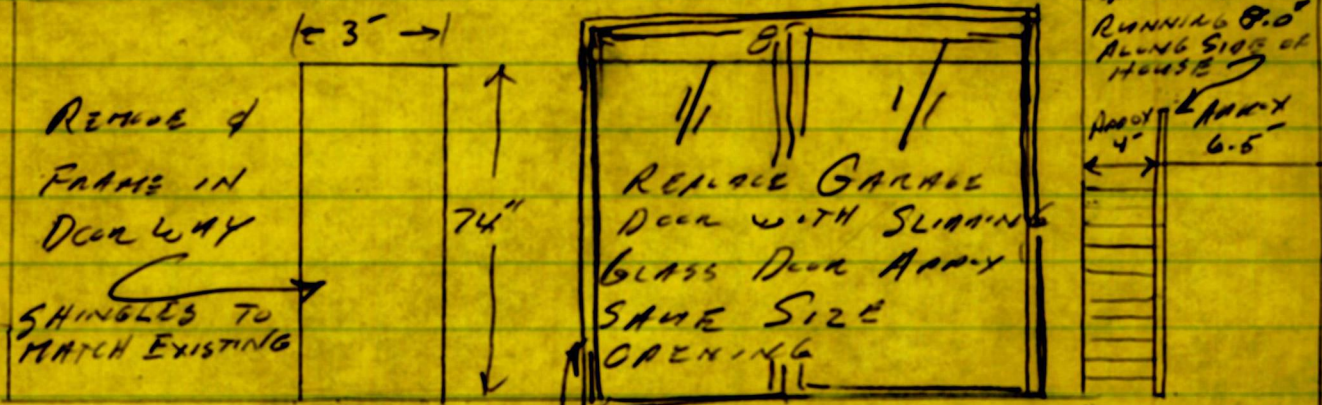 3"
REMOVE &
FRAME IN
DOOR WAY
SHINGLES TO
MATCH EXISTING
74"
8'
REPLACE GARAGE
DOOR WITH SLIDDING
GLASS DOOR APPOX
SAME SIZE
OPENING
RUNNING 8.0"
ALONG SIDE OF
HOUSE
APPOX
4"
APPOX
6.5"